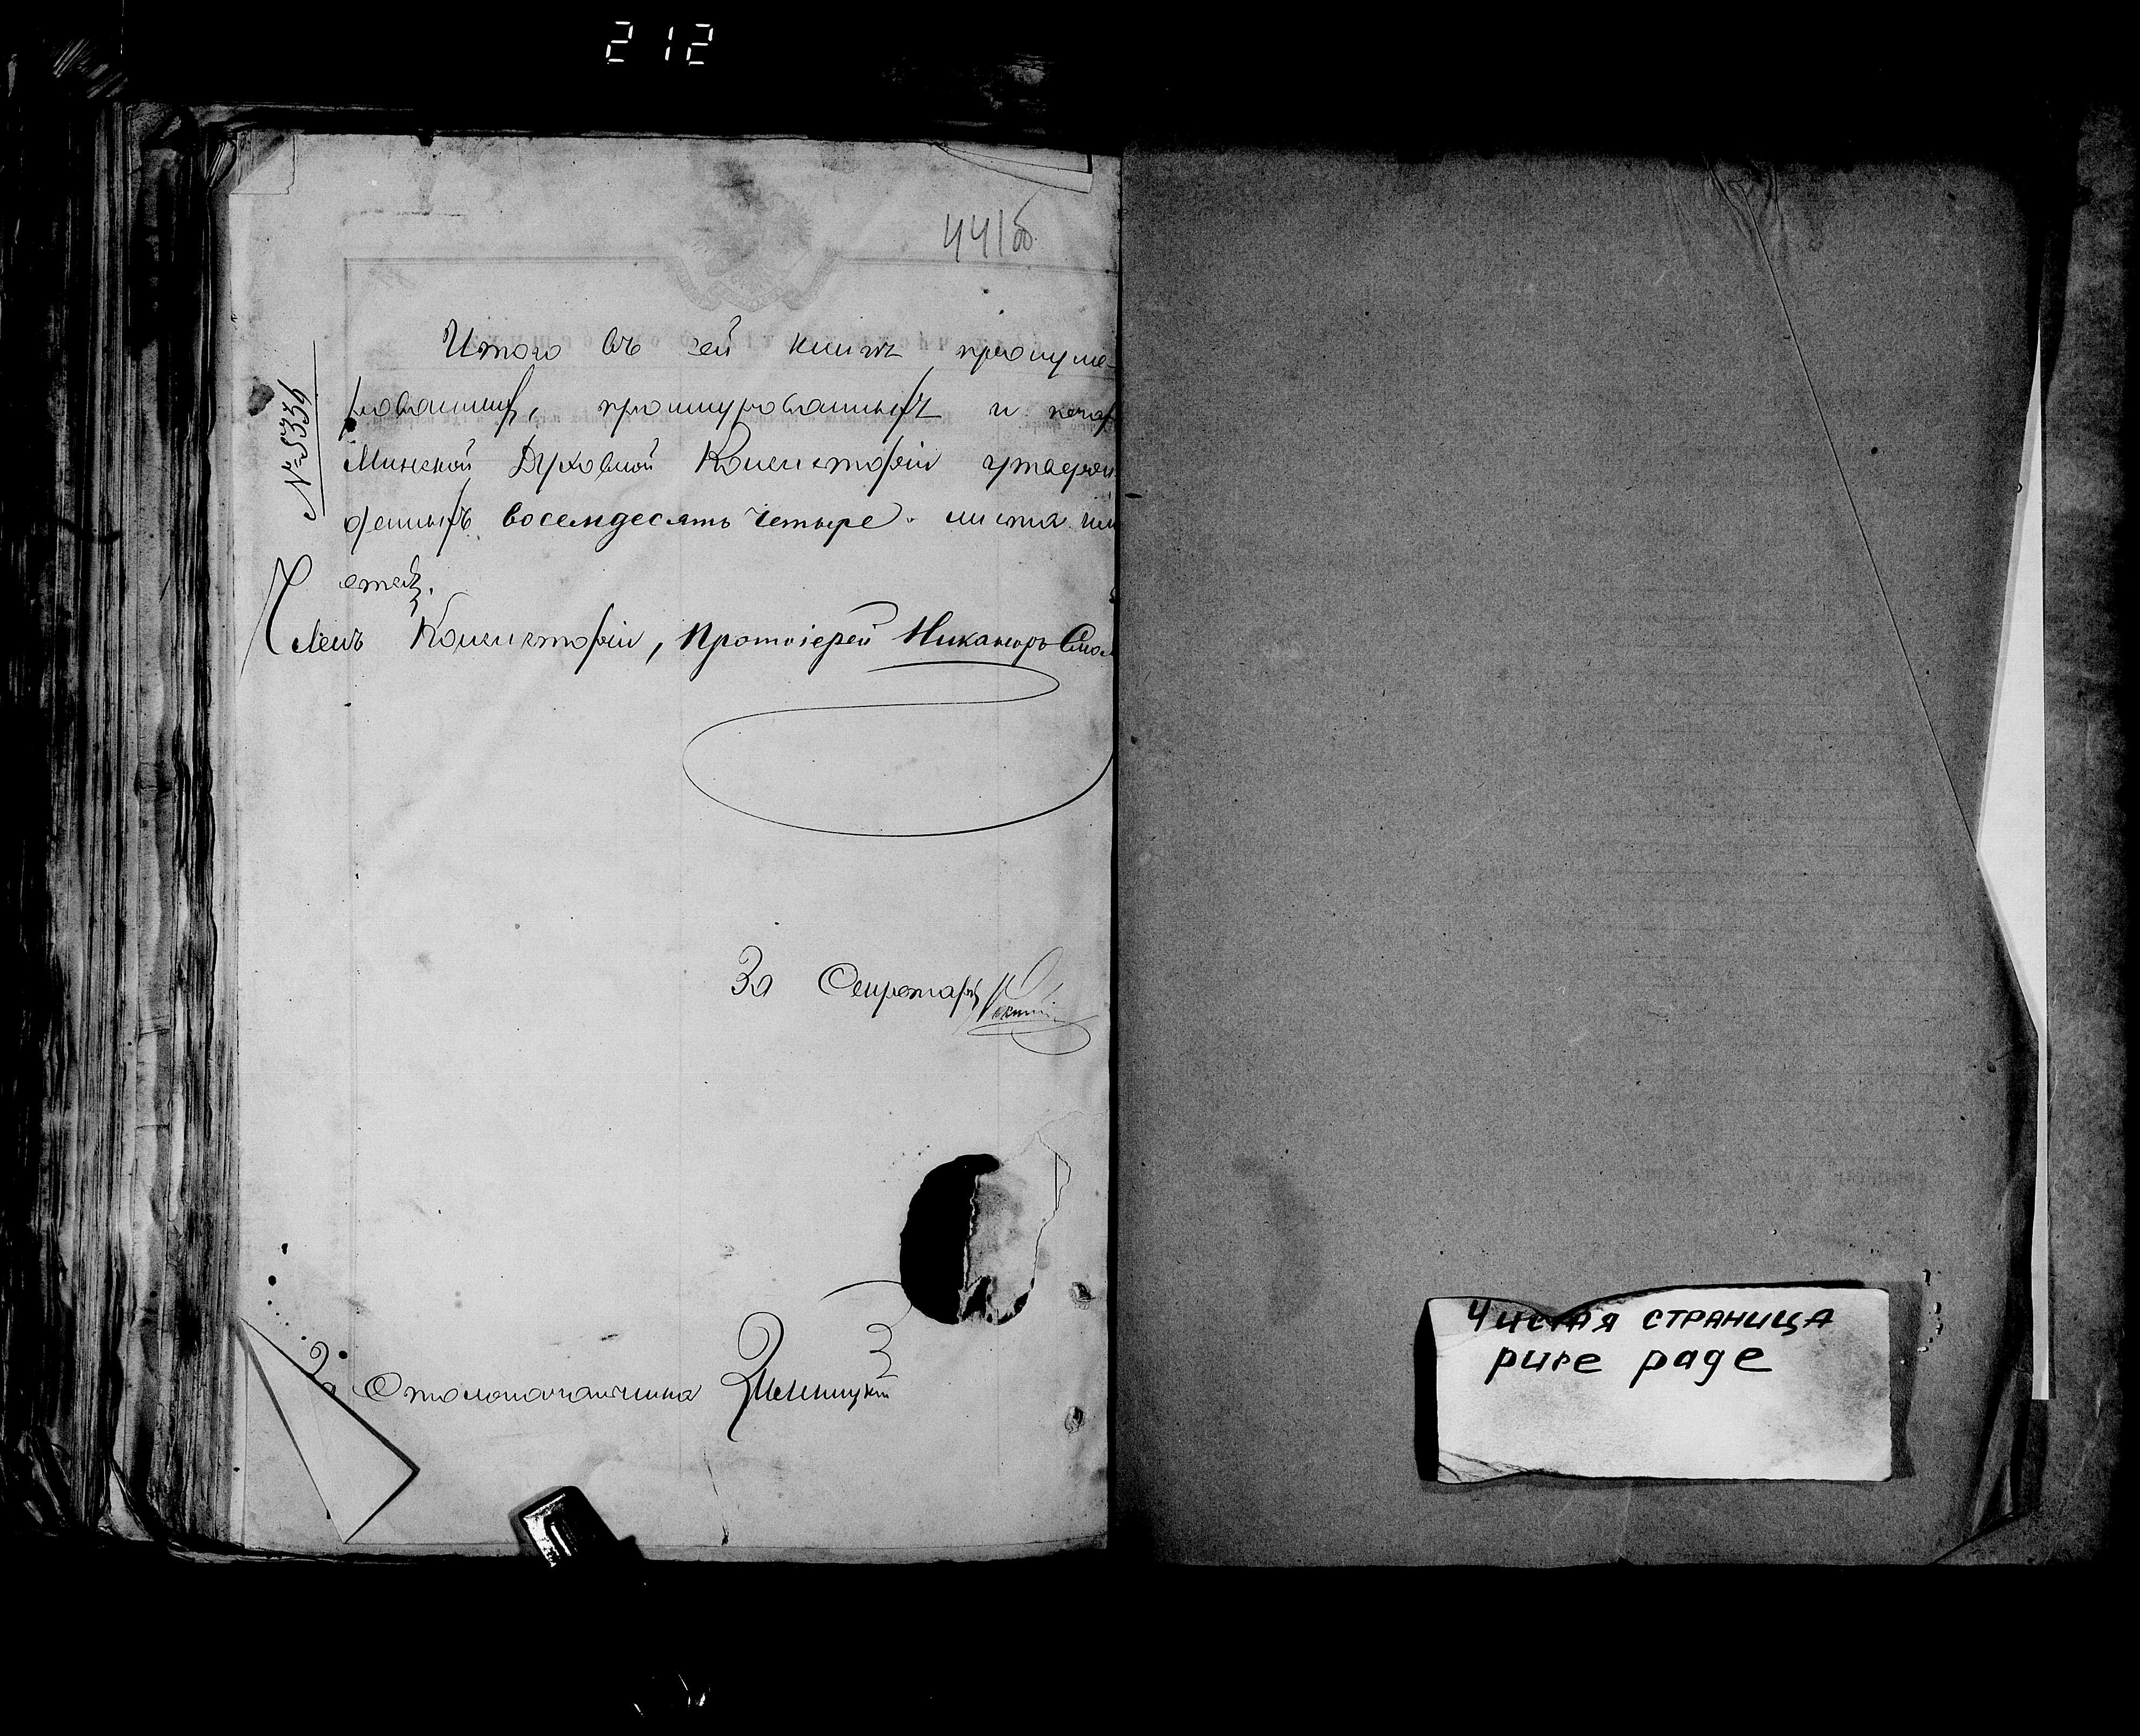 212
441об.
№ 5336
Итого въ сей книгѣ прону­ме-
рованныхъ, прошнурованныхъ и печат
Минской Духовной Консисторіи утвержд
денныхъ восемьдесятъ четыре листа
Членъ Консисторіи, Протоіерей Никаноръ Смол
За Секретаря
За Столоначальника
Чистая страница
pure page